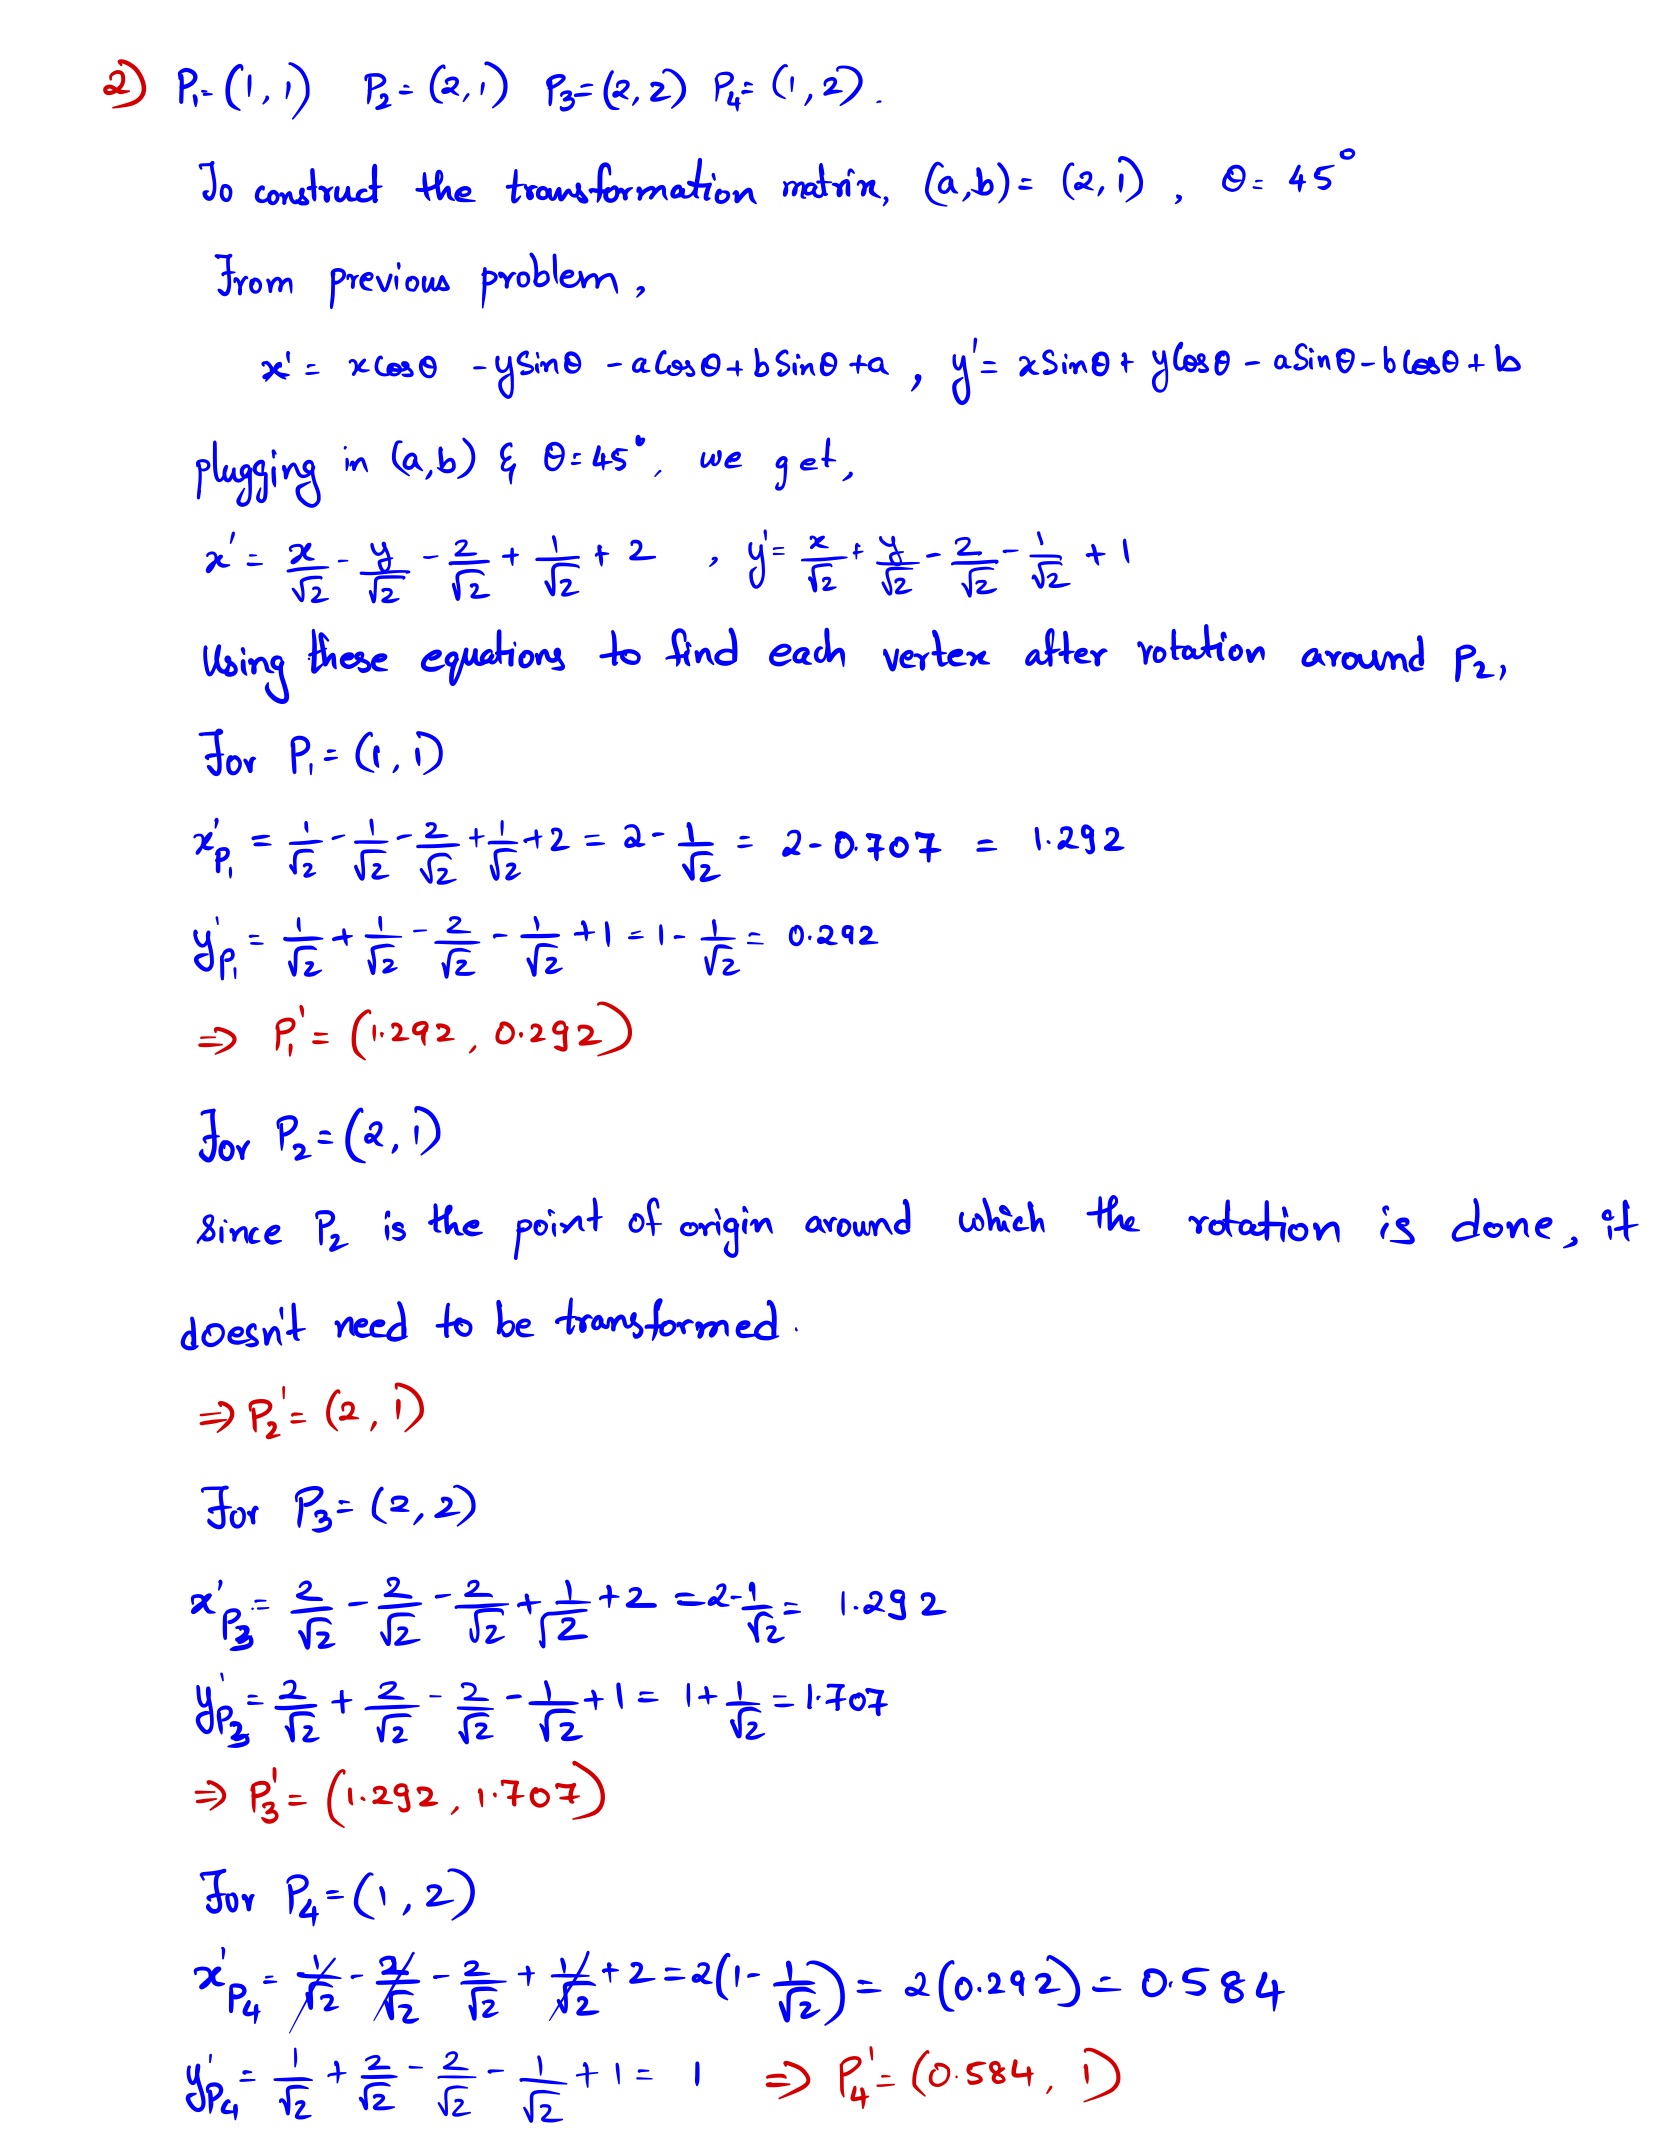 2) P₁= (1, 1) P₂= (2, 1) P₃= (2, 2) P₄= (1, 2).
To construct the transformation matrix, (a,b) = (2, 1), θ = 45°
From previous problem,
x' = x Cosθ - y Sinθ - a Cosθ + b Sinθ + a, y' = x Sinθ + y Cosθ - a Sinθ - b Cosθ + b
plugging in (a,b) & θ = 45°, we get,
x' = x/√2 - y/√2 - 2/√2 + 1/√2 + 2 , y' = x/√2 + y/√2 - 2/√2 - 1/√2 + 1
Using these equations to find each vertex after rotation around P₂,
For P₁ = (1, 1)
x'P₁ = 1/√2 - 1/√2 - 2/√2 + 1/√2 + 2 = 2 - 1/√2 = 2 - 0.707 = 1.292
y'P₁ = 1/√2 + 1/√2 - 2/√2 - 1/√2 + 1 = 1 - 1/√2 = 0.292
⇒ P₁' = (1.292, 0.292)
For P₂ = (2, 1)
Since P₂ is the point of origin around which the rotation is done, it
doesn't need to be transformed.
⇒ P₂' = (2, 1)
For P₃ = (2, 2)
x'P₃ = 2/√2 - 2/√2 - 2/√2 + 1/√2 + 2 = 2 - 1/√2 = 1.292
y'P₃ = 2/√2 + 2/√2 - 2/√2 - 1/√2 + 1 = 1 + 1/√2 = 1.707
⇒ P₃' = (1.292, 1.707)
For P₄ = (1, 2)
x'P₄ = 1/√2 - 2/√2 - 2/√2 + 1/√2 + 2 = 2(1 - 1/√2) = 2(0.292) = 0.584
y'P₄ = 1/√2 + 2/√2 - 2/√2 - 1/√2 + 1 = 1 ⇒ P₄' = (0.584, 1)